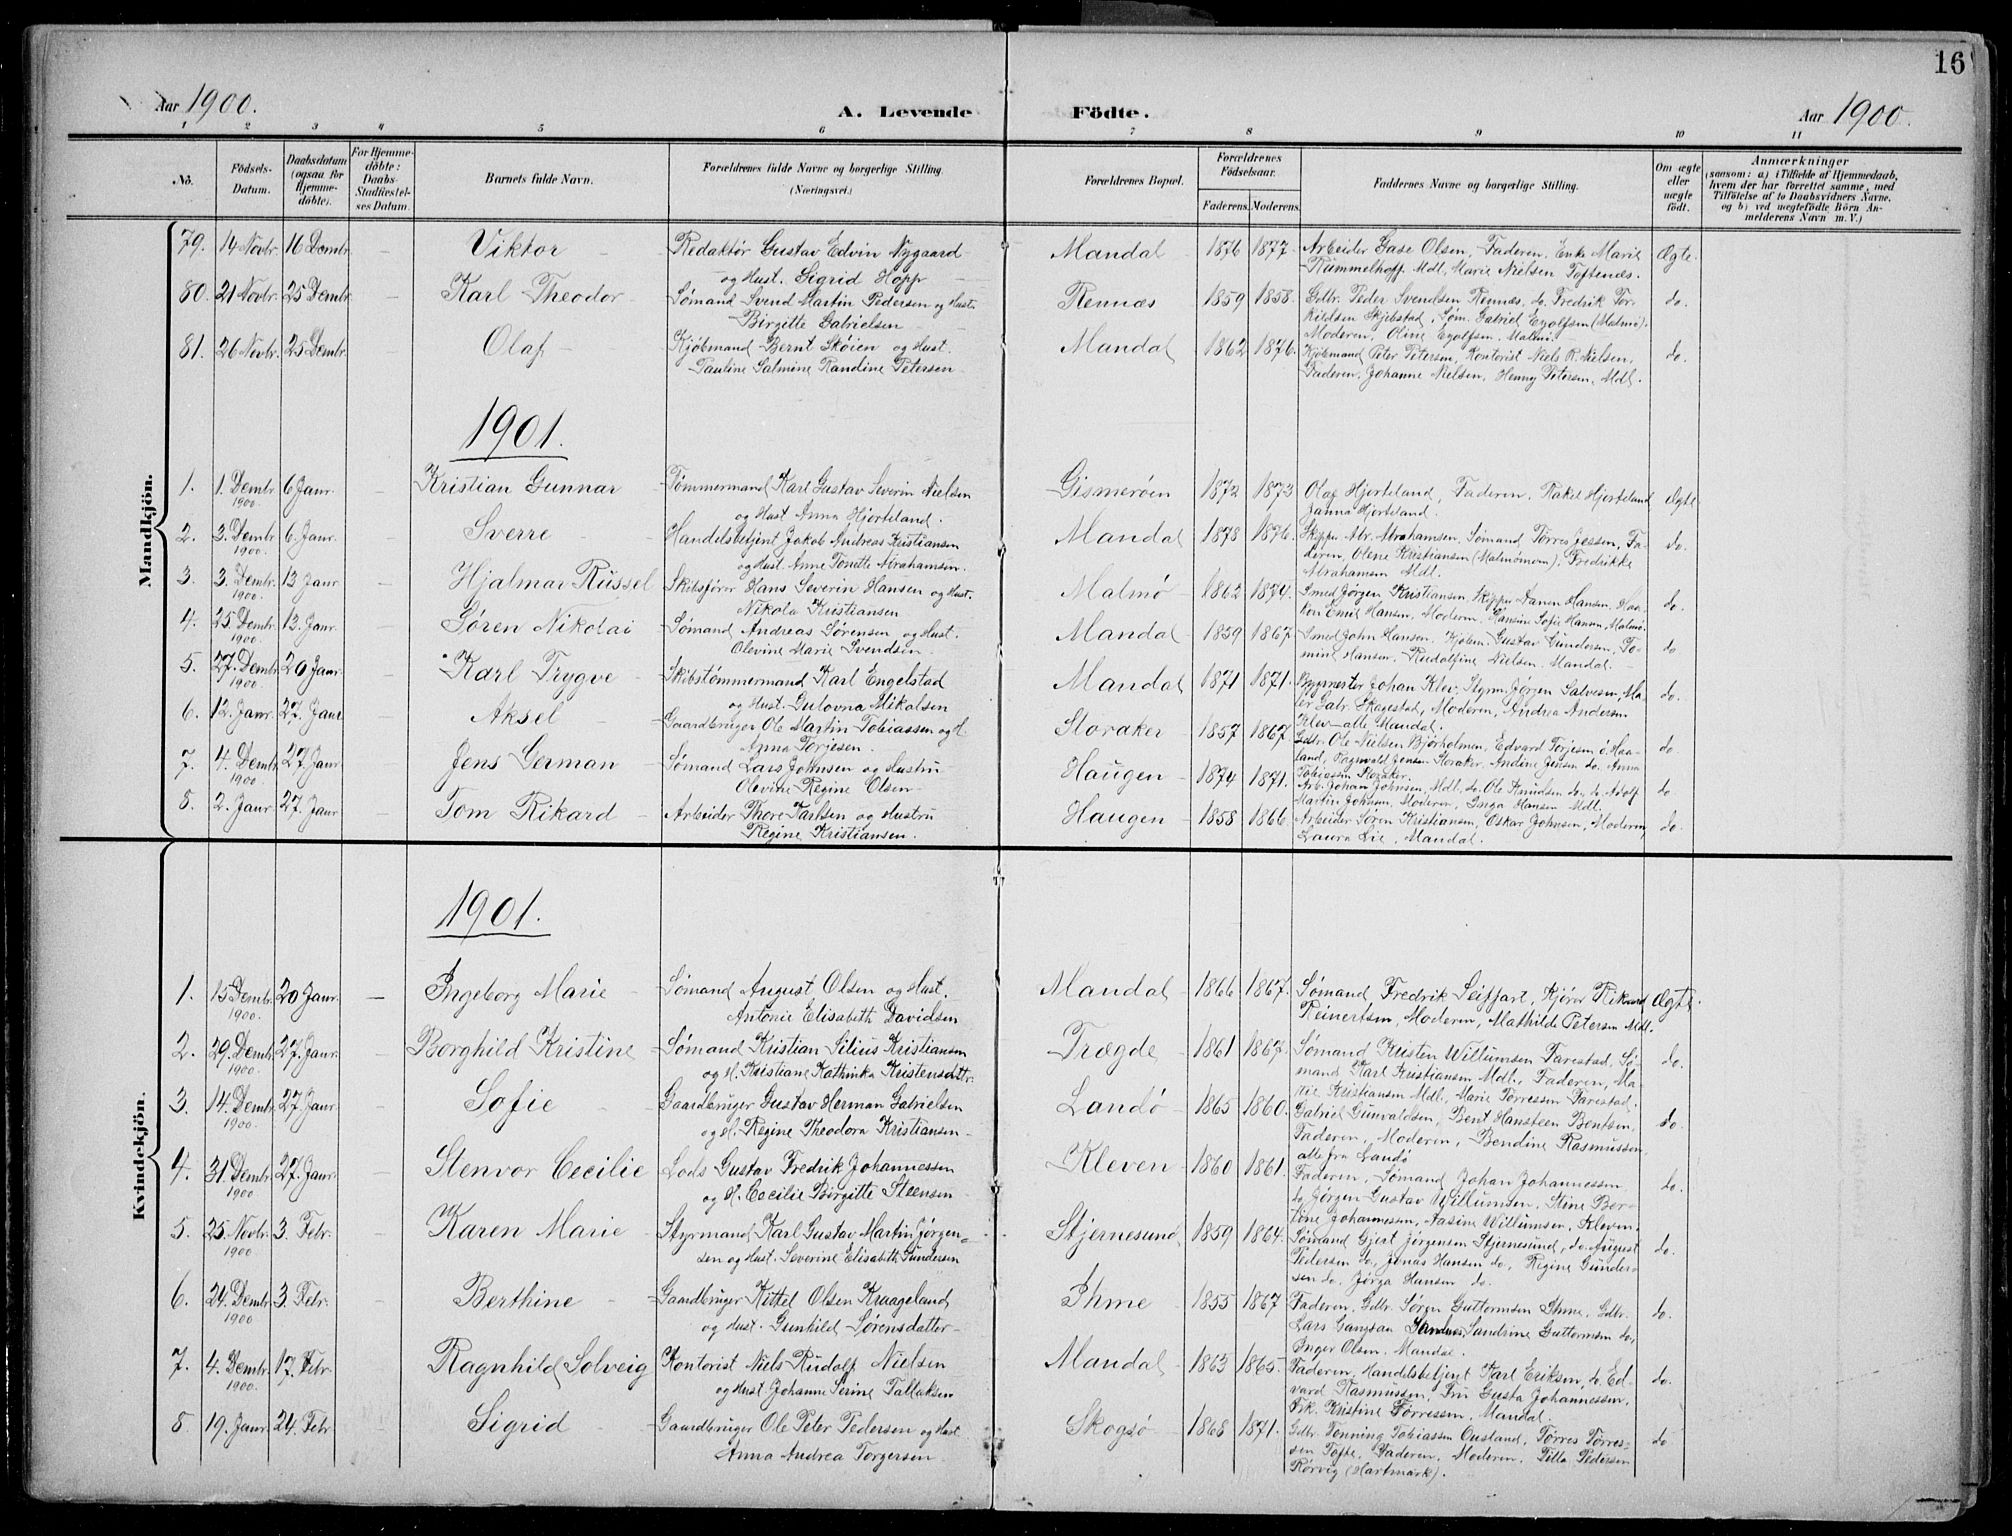 16
Aar 1900. A. Levende Födte. Aar 1900.
1 2 3 4 5 6 7 8 9 10 11
No. Födsels-Datum. Daabsdatum (ogsaa for Hjemmedöbte). For Hjemmedöbte: Daabs-Stadfæstelses Datum. Barnets fulde Navn. Forældrenes fulde Navne og borgerlige Stilling (Næringsvei.) Forældrenes Bopæl. Forældrenes Födselsaar. Faderens. Moderens. Faddernes Navne og borgerlige Stilling. Om ægte eller uægte födt. Anmærkninger (saasom: a) i Tilfælde af Hjemmedaab, hvem der har forrettet samme, med Tilföielse af to Daabsvidners Navne, og b) ved uægtefödte Börn Anmelderens Navn m. V.)
Mandkjön.
79. 14 Novbr. 16 Dembr. - Viktor - Redaktør Gustav Edvin Nygaard Mandal 1876 1877. Arbeider Gase Olsen, Faderen, Enke Marie Ægte.
og Hust. Sigrid Hopp Rümmelhoff Mdl, Marie Nielsen Toftenæs.
80. 21 Novbr. 25 Dembr. - Karl Theodor - Sømand Svend Martin Pedersen og Hust. Rennæs 1859 1858. Gdbr. Peder Svendsen Rennæs, do. Fredrik Tor- do.
Birgitte Gabrielsen kielsen Skjebstad, Søm. Gabriel Egolfsen (Malmø).
Moderen, Oline Egolfsen, Malmö.
81. 26 Novbr. 25 Dembr. - Olaf - Kjøbmand Bernt Skøien og Hust. Mandal 1862 1876. Kjøbmand Peter Petersen, Kontorist Niels R. Nielsen, do.
Pauline Salmine Randine Petersen Faderen, Johanne Nielsen, Henny Petersen, Mdl.
1901.
1. 1. Dembr. 1900. 6 Janr. - Kristian Gunnar - Tømmermand Karl Gustav Severin Nielsen Gismerøen 1872 1873 Olaf Hjorteland, Faderen, Rakel Hjorteland Ægte
og Hust. Anna Hjorteland. Janna Hjorteland.
2. 3. Dembr. 1900. 6. Janr. - Sverre - Handelsbetjent Jakob Andreas Kristiansen Mandal 1878 1876. Skipper Abr. Abrahamsen, Sømand Torres Jessen, Fa- do.
og Hust. Anne Tonette Abrahamsen. deren, Olene Kristiansen (Malmømoen), Fredrikke
Abrahamsen Mdl.
3. 3. Dembr. 1900. 13 Janr. - Hjalmar Russel Skibsfører Hans Severin Hansen og Hust. Malmø 1862 1874. Smed Jørgen Kristiansen, Skipper Hansen, Haa- do.
Nikola Kristiansen kon Emil Hansen, Moderen, Hansine Sofie Hansen, Malmø.
4. 25 Dembr. 1900. 13. Janr. - Søren Nikolai - Sømand Andreas Sørensen og Hust. Mandal 1859 1867 Smed John Hansen, Kjøbm. Gustav Gundersen, To- do
Olevine Marie Svendsen. mine Hansen, Rudolfine Nielsen, Mandal.
5. 27. Dembr. 1900. 20 Janr. - Karl Trygve - Skibstømmermand Karl Engelstad Mandal 1871 1871. Bygmester Johan Klev, Styrm. Jørgen Salvesen, Ma- do.
og Hust. Mikalsen ler Gabr. Skagestad, Moderen, Andrea Andersen
Klev - alle Mandal.
6. 12. Janr. 27. Janr. - Aksel - Gaardbruger Ole Martin Tobiassen og H. Storaker 1857 1867. Gdbr. Ole Nielsen Bjørholmen, Edvard Torjesen Haa- do.
Anna Torjesen. land, Ragnvald Jensen Storaker, Andine Jensen do. Anna
Tobiassen Storaker.
7. 4. Dembr. 1900. 27. Janr. - Jens German - Sømand Lars Johnsen og Hustru Haugen 1874 1871. Arb. Johan Johnsen, Mdl. do. Ole Knudsen do, do. Adolf do.
Olevine Regine Olsen Martin Johnsen, Moderen, Inga Hansen Mdl.
8. 2. Janr. 27. Janr - Tom Rikard - Arbeider Thore Karlsen og Hustru Haugen 1858 1866. Arbeider Søren Kristiansen, Oskar Johnsen, Moderen, do.
Regine Kristiansen. Laura Lie, Mandal.
Kvindekjön.
1901.
1. 15 Dembr. 1900. 20 Janr. - Ingeborg Marie - Sømand August Olsen og Hust. Mandal 1866 1867. Sømand Fredrik Seiffart, Rikard Ægte.
Antonie Elisabeth Davidsen Reinertsen, Moderen, Mathilde Petersen Mdl.
2. 29. Dembr. 1900 27. Janr. - Borghild Kristine - Sømand Kristian Silius Kristiansen Trægde 1861 1867. Sømand Kristen Willumsen Farestad, Sø- do.
og H. Kristiane Kathinka Kristensdttr. mand Karl Kristiansen Mdl., Faderen, Ma-
tie Kristiansen Mdl., Marie Torressen Farestad.
3. 14. Dembr. 1900. 27. Janr - Sofie - Gaardbruger Gustav Herman Gabrielsen Landø 1865 1860. Gabriel Gunvaldsen, Bent Hansteen Bentsen, do.
og H. Regine Theodora Kristiansen Faderen, Moderen, Bendine Rasmussen,
alle fra Landø
4. 31. Dembr. 1900 27. Janr. - Stenvor Cecilie Lods Gustav Fredrik Johannessen Kleven 1860 1861. Faderen, Sømand Johan Johannessen do.
og H. Cecilie Birgitte Steensen do. Jørgen Gustav Willumsen, Stine Ber-
tine Johannessen, Aasine Willumsen, Kleven.
5. 25. Novbr. 1900 3. Febr. - Karen Marie - Styrmand Karl Gustav Martin Jørgen- Stjernesund 1859 1864. Sømand Gjert Jørgensen Stjernesund, do. August do.
sen og Hust. Severine Elisabeth Gundersen Pedersen do, Jonas Hansen do, Regine Gunder-
sen do, Jørga Hansen do.
6. 24. Dembr. 1900 3. Febr. - Berthine - Gaardbruger Kittel Olsen Kraageland Ihme 1855 1867 Faderen, Gdbr. Sørgen Guttormsen Ihme, Gdbr. do.
og Hust. Gunhild Sørensdatter Lars Sandrine Guttormsen do,
Inger Olsen, Mandal.
7. 4. Dembr. 1900. 17. Febr - Ragnhild Solveig Kontorist Niels Rudolf Nielsen Mandal 1863 1865. Faderen, Handelsbetjent Karl Eriksen, do. Ed- do.
og Hust. Johanne Serine Tallaksen vard Rasmussen, Fru Gusta Johannessen,
Frk. Kristine Torressen, Mandal.
8 19. Janr 24. Febr - Sigrid - Gaardbruger Ole Peter Pedersen og Hust. Skogsø 1868 1871. Gdbr. Tønning Tobiassen Ousland, Torres Torres- do
Anna Andrea Torgersen sen Tofte, Faderen, Moderen, Titta Pedersen
Rørvig (Hartmark).